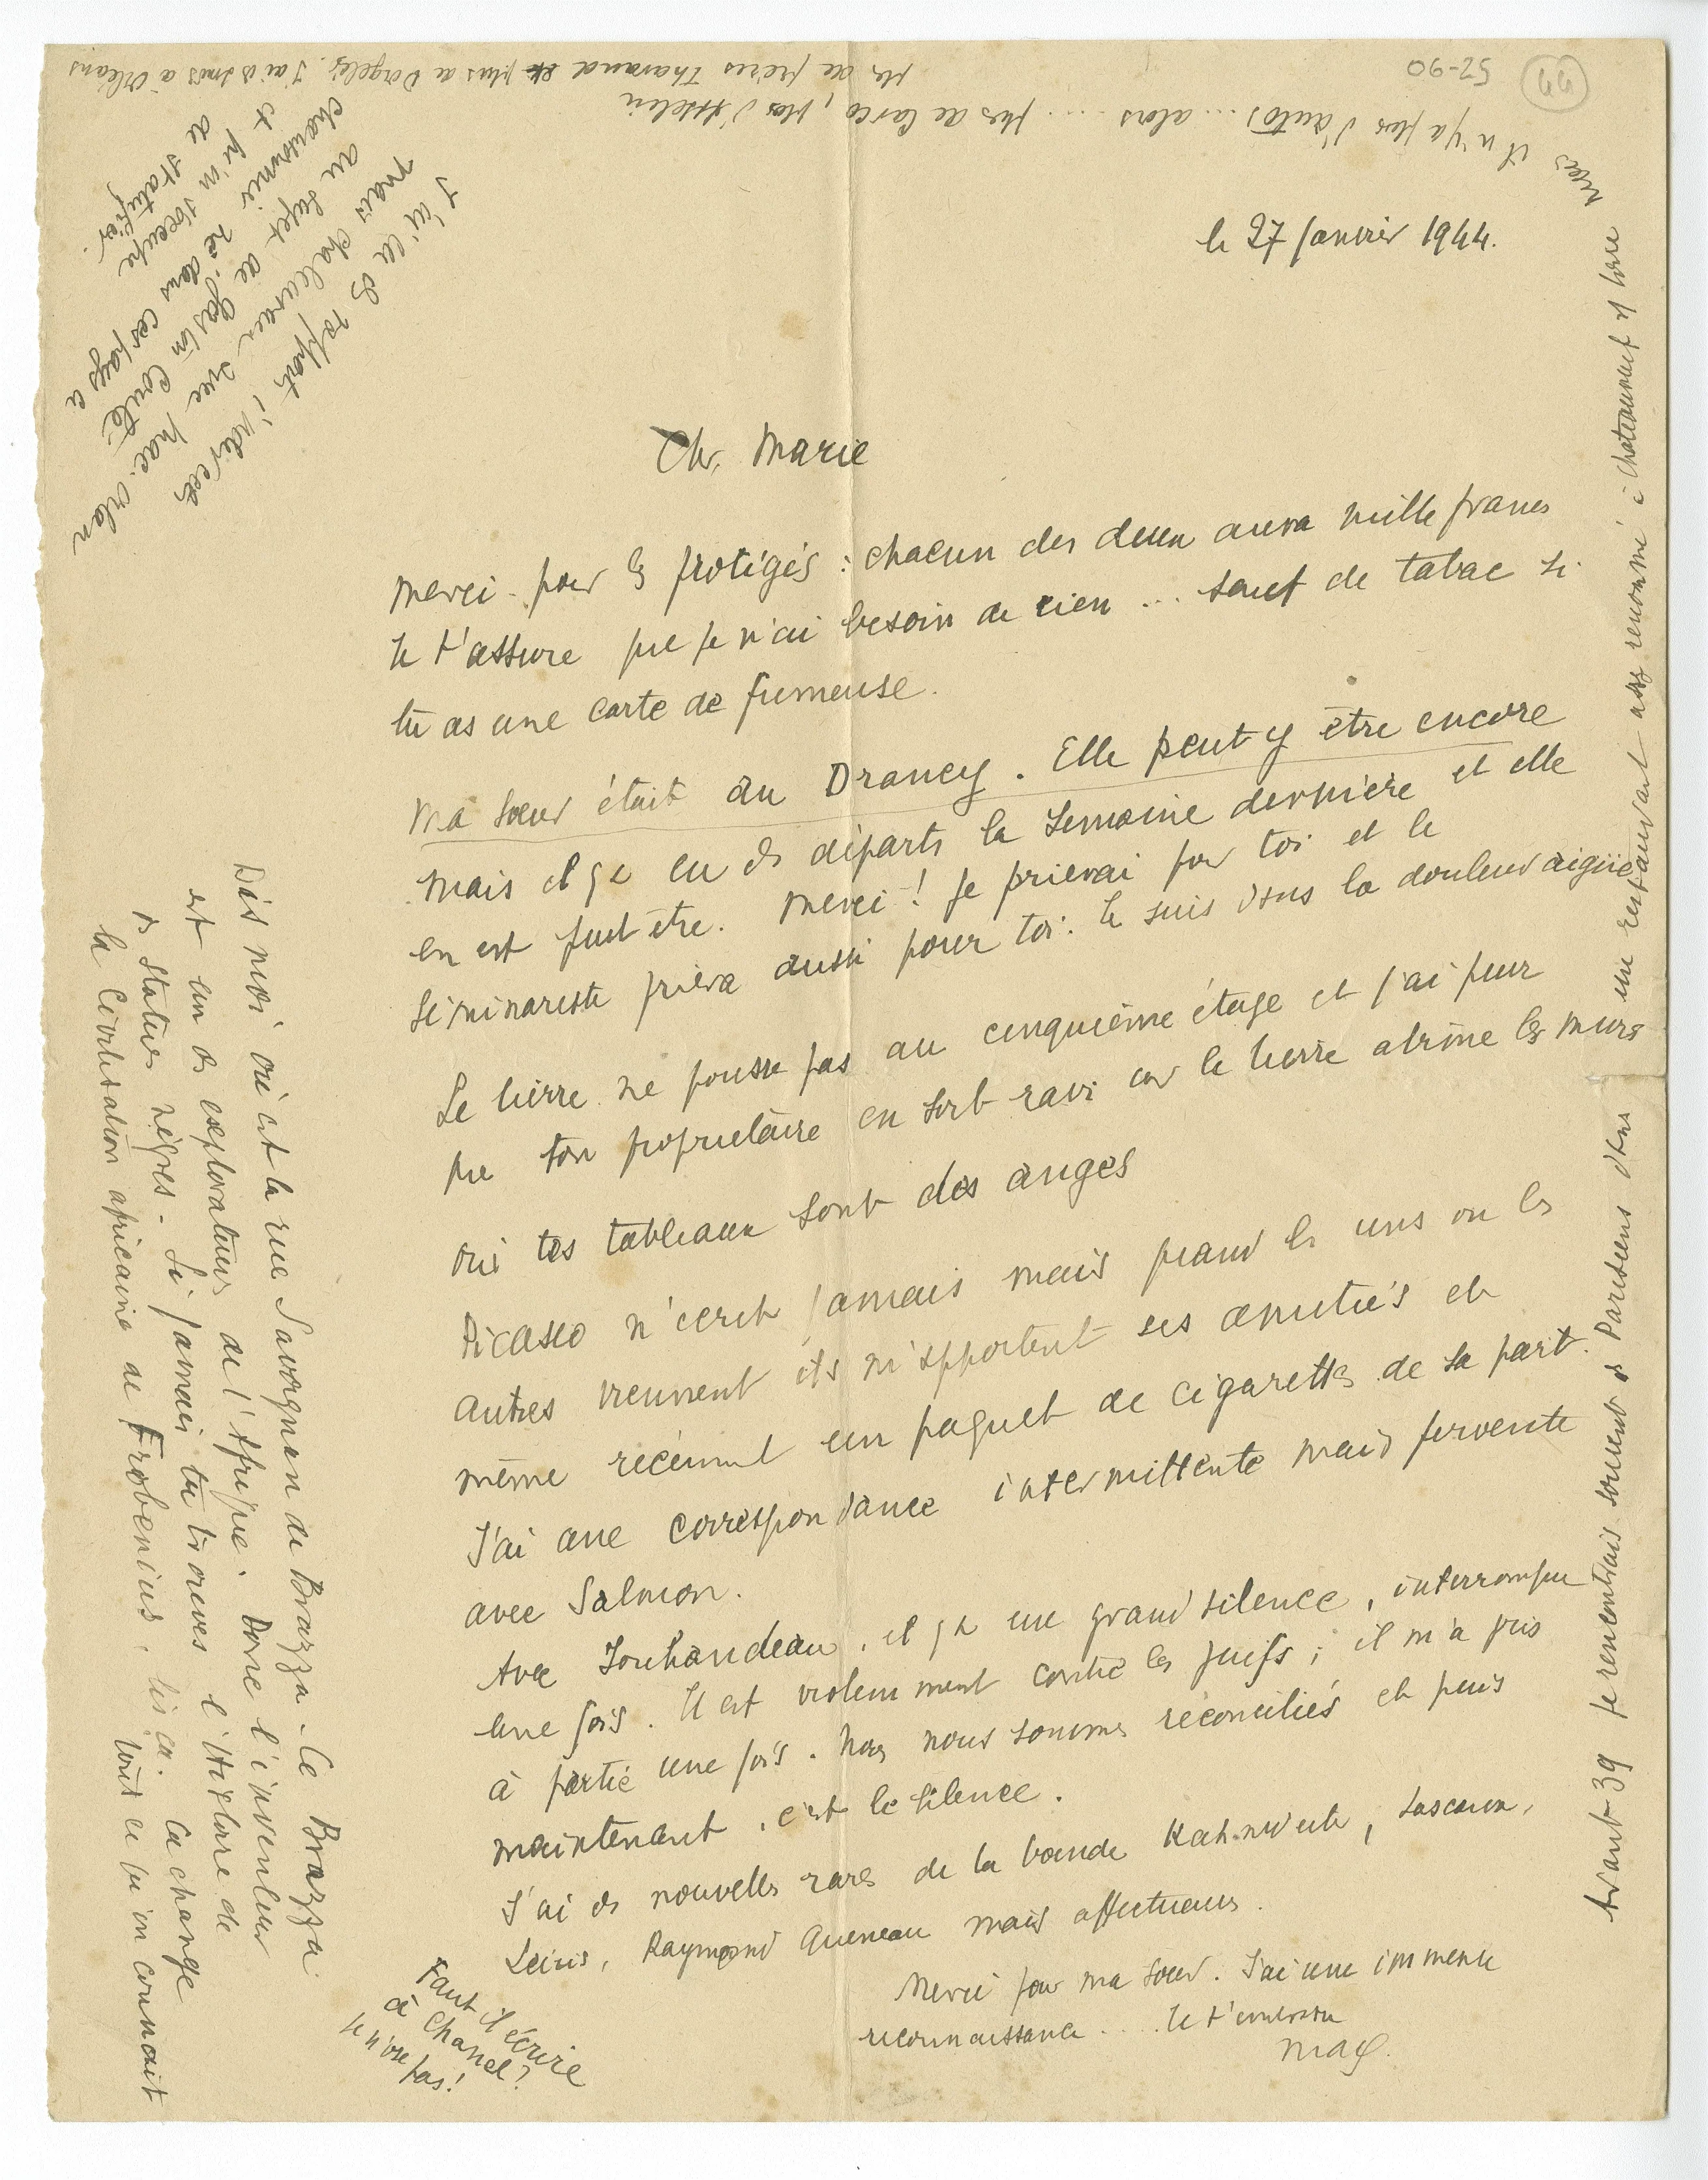 le 27 Janvier 1944.
Ch. Marie
Merci pour les protégés : chacun des deux aura mille francs
Je t'assure que je n'ai besoin de rien ... sauf de tabac si
tu as une carte de fumeuse.
Ma sœur était au Drancy. Elle peut y être encore
mais il y a eu des départs la semaine dernière et elle
en est peut être. Merci ! Je prierai pour toi et le
séminariste priera aussi pour toi. Je suis dans la douleur aigüe
Le lierre ne pousse pas au cinquième étage et j'ai peur
que ton propriétaire en soit ravi car le lierre abîme les murs
Oui tes tableaux sont des anges
Picasso n'écrit jamais mais quand les uns ou les
autres viennent ils m'apportent ses amitiés et
même récemment un paquet de cigarettes de sa part.
J'ai une correspondance intermittente mais fervente
avec Salmon.
Avec Jouhandeau, il y a un grand silence, interrompu
une fois. Il est violemment contre les juifs ; il m'a pris
à partie une fois. Nous nous sommes réconciliés et puis
maintenant, c'est le silence.
J'ai des nouvelles rares de la bande Kahnweiler, Lascaux,
Leiris, Raymond Queneau mais affectueuses.
Merci pour ma sœur. J'ai une immense
reconnaissance ... Je t'embrasse
Max.
Faut il écrire
à Chanel ?
Je n'ose
pas !
Dis moi où est la rue Savorgnan de Brazza. Ce Brazza
est un des explorateurs de l'Afrique. Donc l'inventeur
des statues nègres. Si jamais tu trouves l'Histoire de
la Civilisation africaine de Frobenius, lis ça. Ca change
tout ce qu'on connait
Avant 39 je rencontrais souvent des Parisiens dans un restaurant assez renommé à Chateauneuf s/ Loire
mais il n'y a plus d'autos ... alors ... plus de Carco, plus d'Asselin
plus de frères Tharaud et plus de Dorgelès. J'ai des amis à Orléans
J'ai eu des rapports indirects
mais chaleureux avec Mac-Orlan
au sujet de Gaston Couté,
chansonnier né dans ces pays ci
et qu'on s'occupe
de statufier.
44
52-90